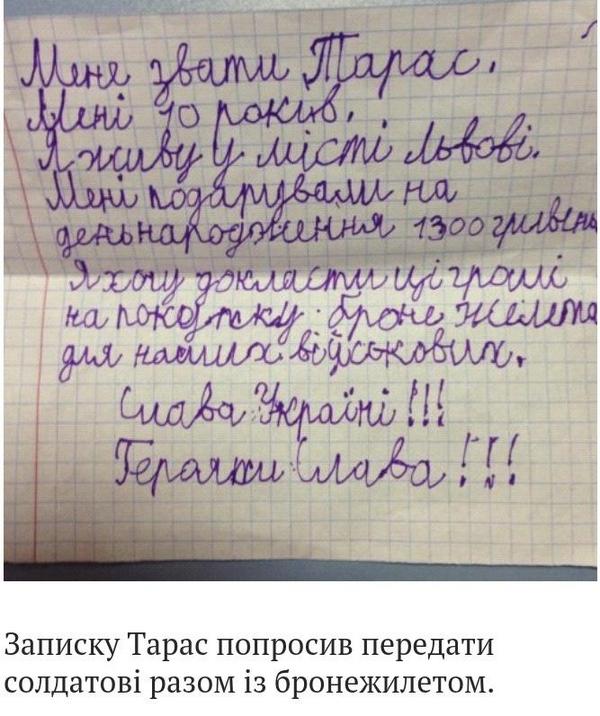 Мене звати Тарас.
Мені 10 років.
Я живу у місті Львові.
Мені подарували на
день народження 1300 гривень
Я хочу докласти ці гроші
на бронежилета
для наших військових.
Слава Україні!!!
Героям Слава!!!
Записку Тарас попросив передати
солдатові разом із бронежилетом.